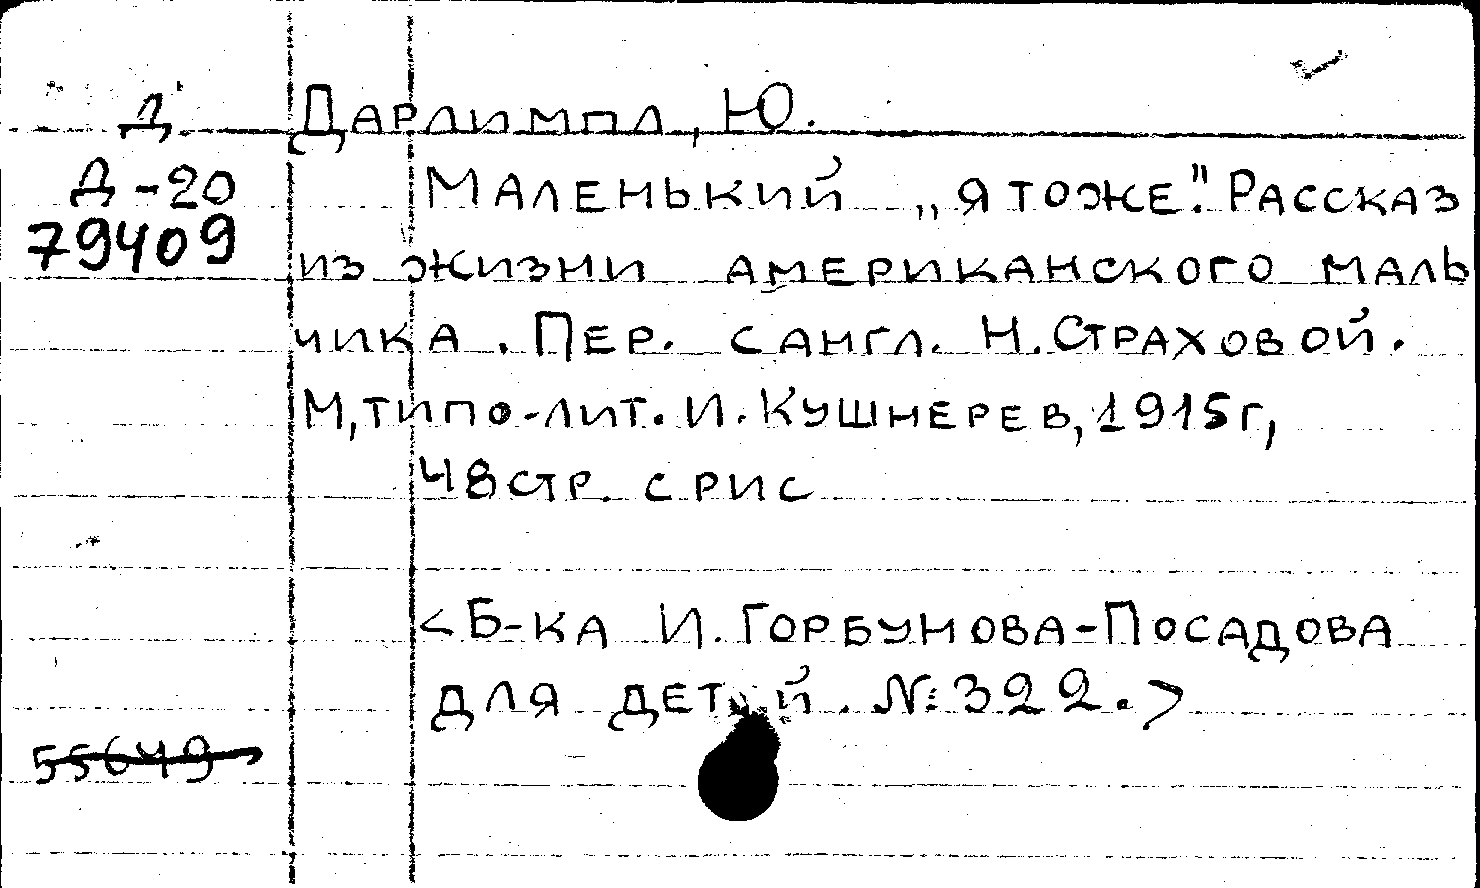 Д Дарлимпл, Ю.
Д-20 Маленький „я тоже". Рассказ
79409 из жизни американского маль
чика. Пер. с англ. Н. Страховой.
М, типо-лит. И. Кушнерев, 1915 г,
48 стр. с рис
<Б-ка И. Горбунова-Посадова
для детей. №322.>
55649